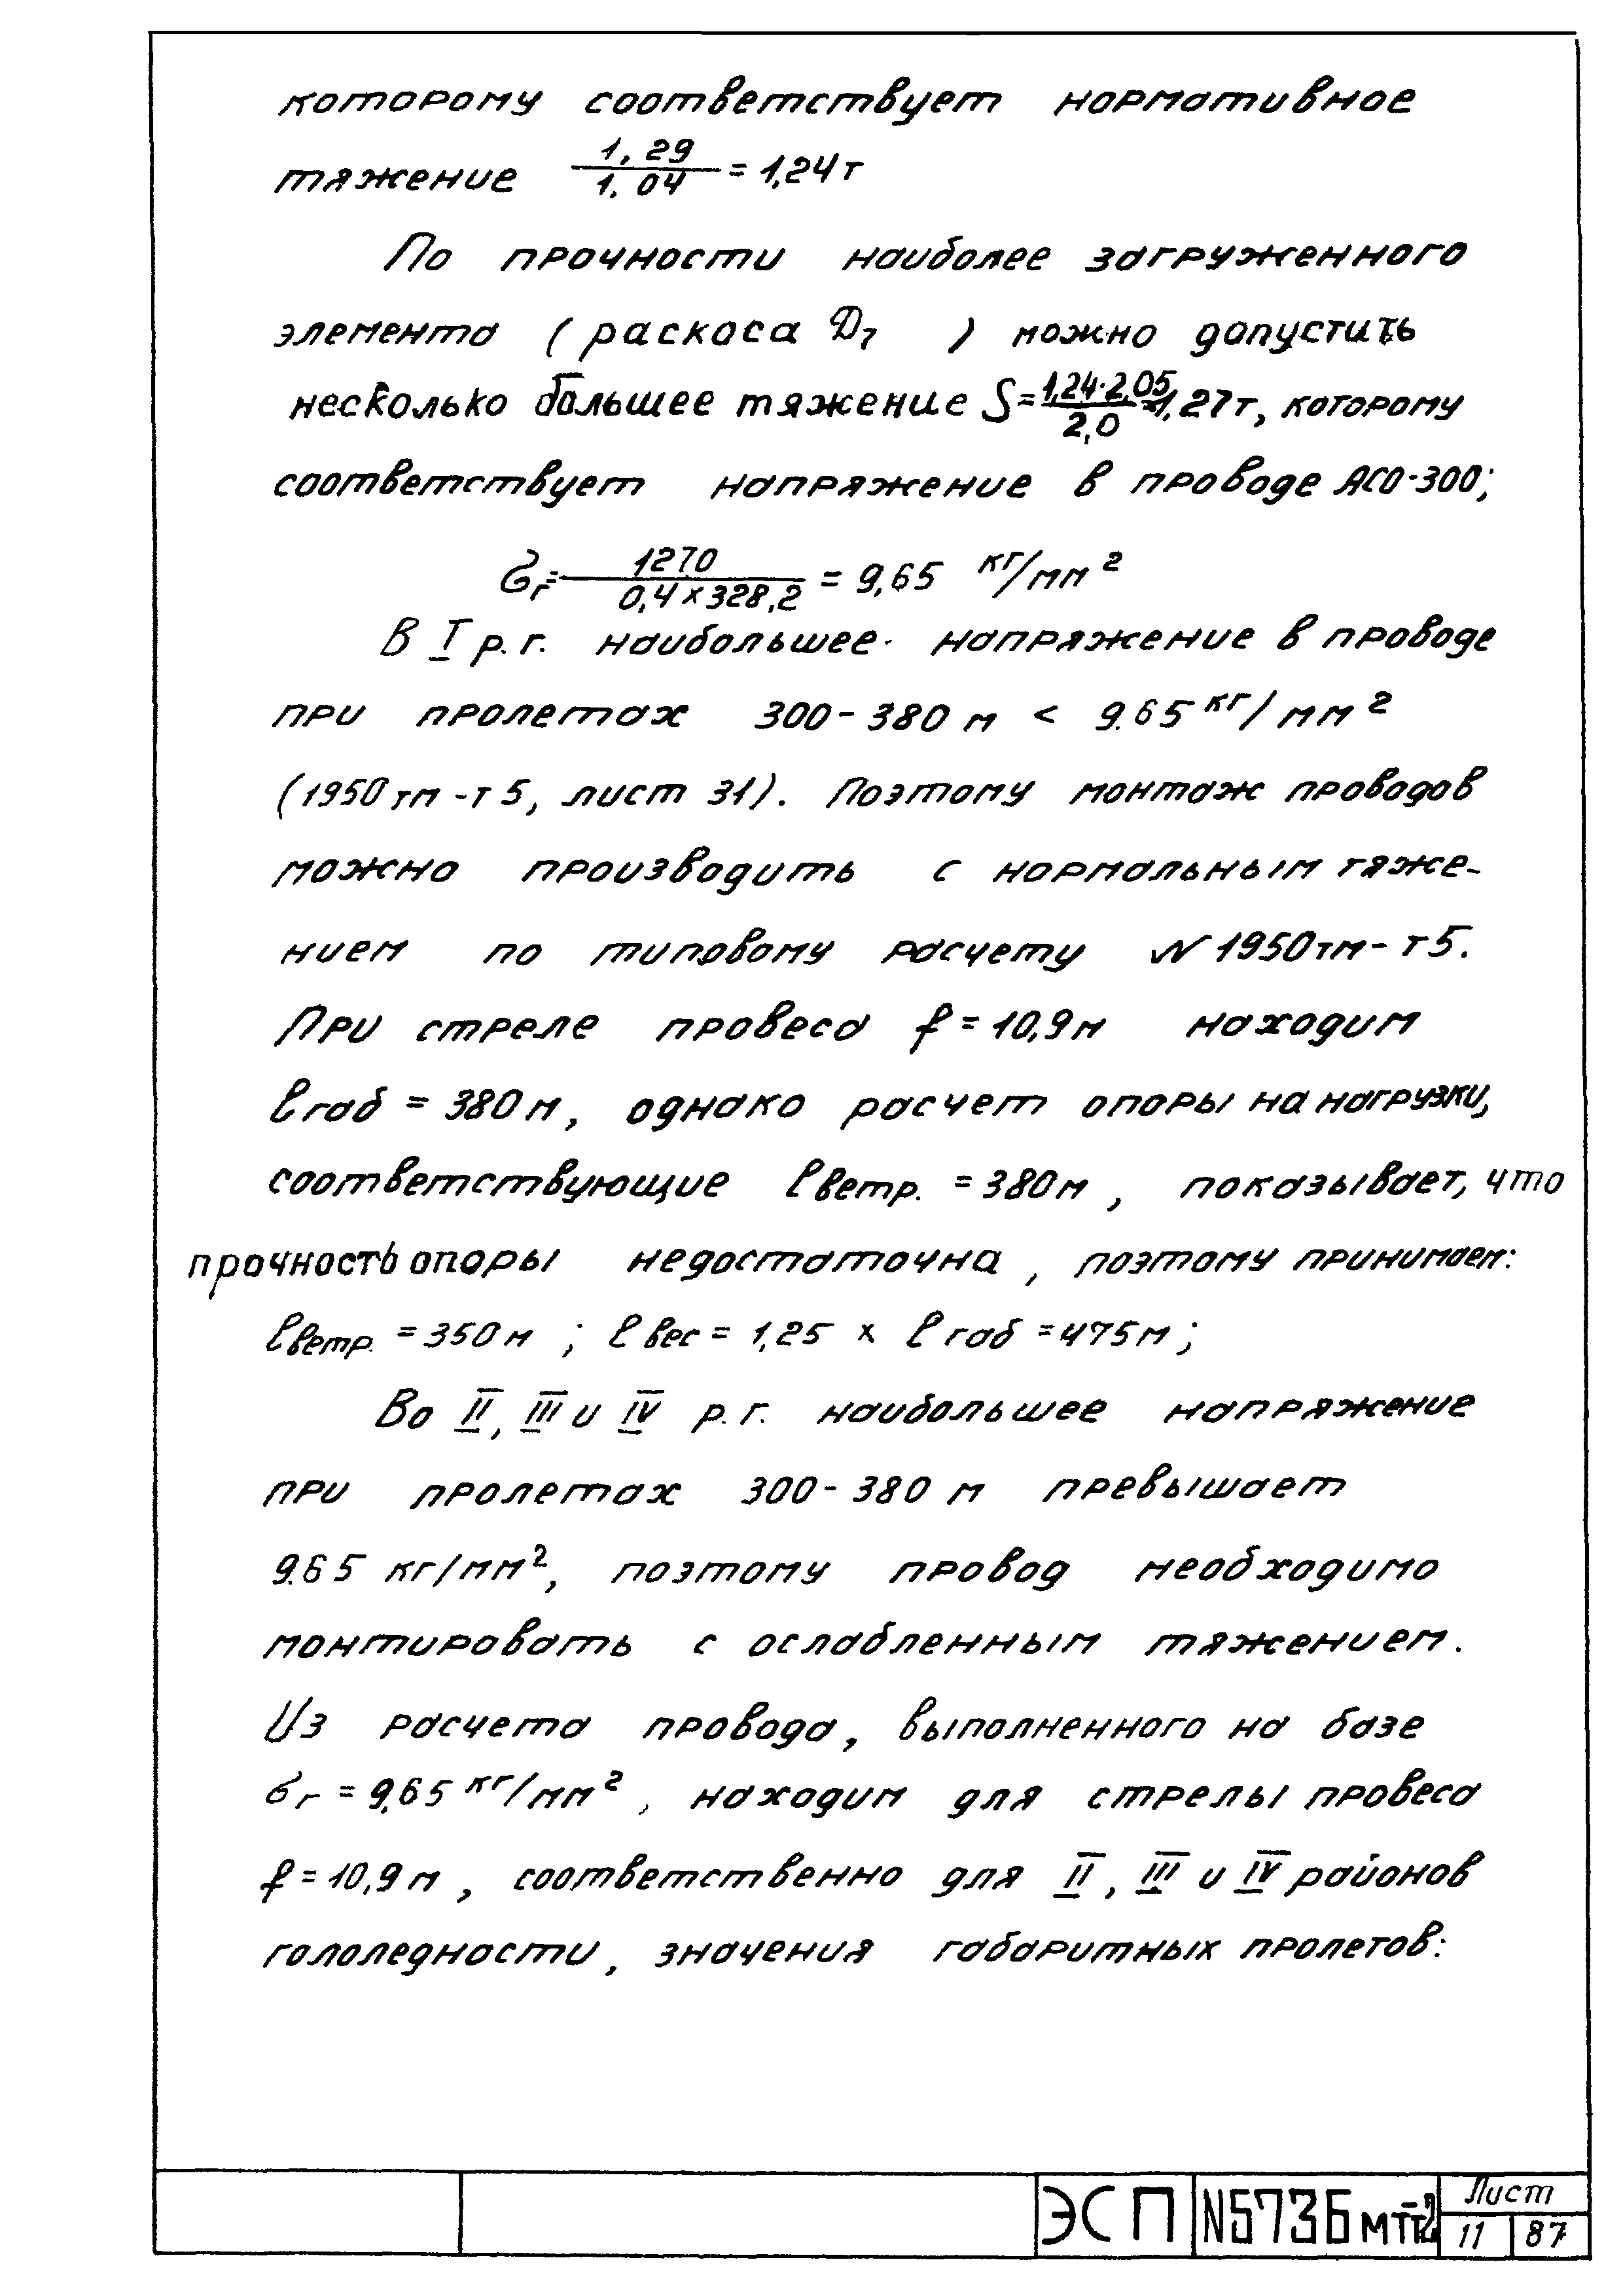 которому соответствует нормативное
тяжение 1,29/1,04 = 1,24 т
По прочности наиболее загруженного
элемента (раскоса Д7 ) можно допустить
несколько большее тяжение S = 1,24·2,05/2,0 = 1,27 т, которому
соответствует напряжение в проводе АСО-300;
σг = 1270/0,4 x 328,2 = 9,65 кг/мм²
В I р.г. наибольшее напряжение в проводе
при пролетах 300-380 м < 9.65 кг/мм²
(1950 тм-т5, лист 31). Поэтому монтаж проводов
можно производить с нормальным тяже-
нием по типовому расчету N 1950тм-т5.
При стреле провеса f = 10,9 м находим
ℓ габ = 380 м, однако расчет опоры на нагрузки,
соответствующие ℓ ветр. = 380 м, показывает, что
прочность опоры недостаточна, поэтому принимаем:
ℓ ветр. = 350 м ; ℓ вес = 1,25 x ℓ габ = 475 м ;
Во II, III и IV р.г. наибольшее напряжение
при пролетах 300-380 м превышает
9.65 кг/мм², поэтому провод необходимо
монтировать с ослабленным тяжением.
Из расчета провода, выполненного на базе
σг = 9,65 кг/мм², находим для стрелы провеса
f = 10,9 м, соответственно для II, III и IV районов
гололедности, значения габаритных пролетов:
ЭСП N5736 мт-т2 Лист
11 87